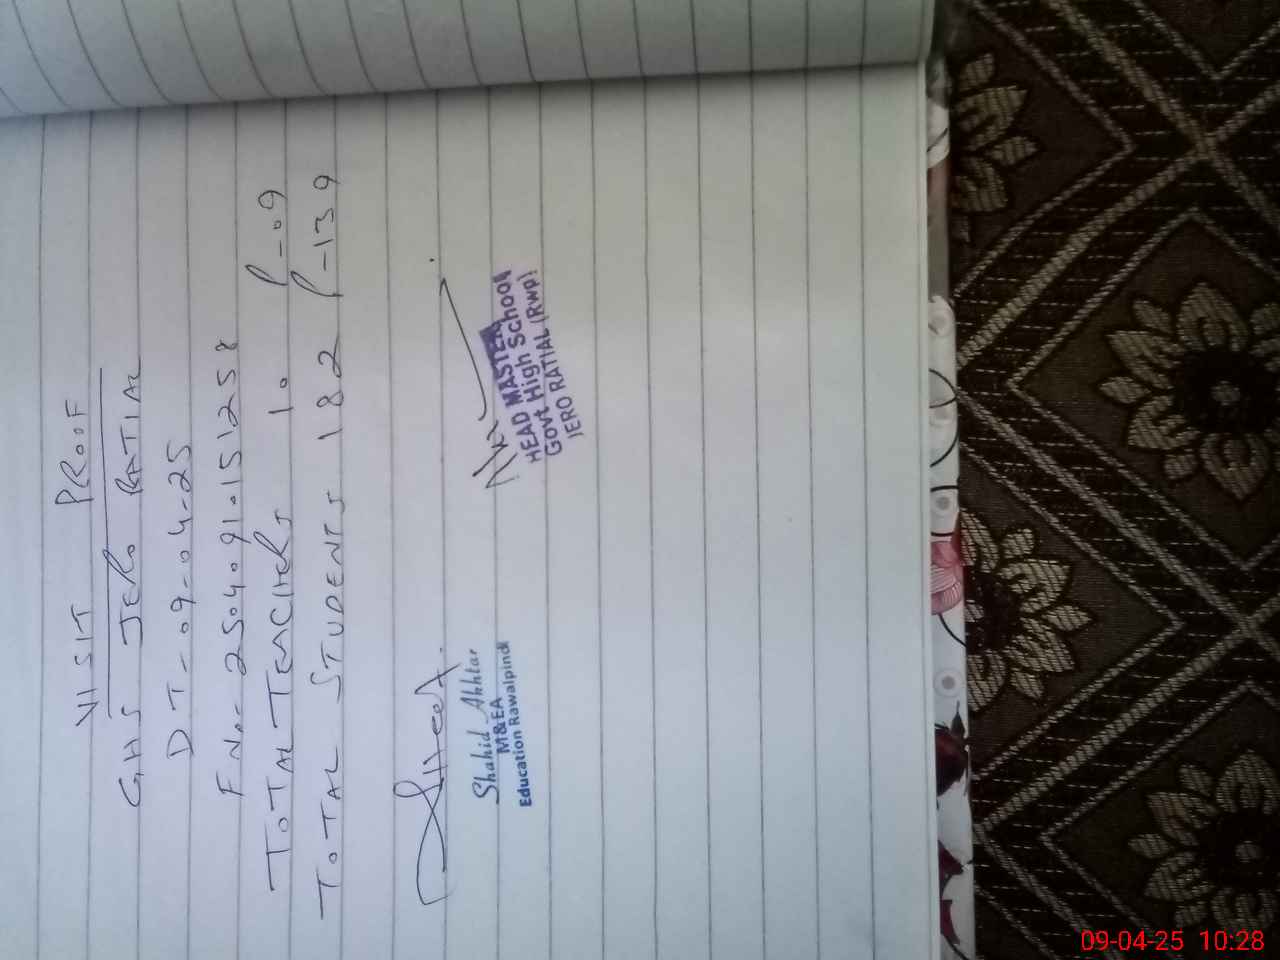 VISIT PROOF
GHS JERO RATIAL
DT-09-04-25
F No- 25040910151258
TOTAL TEACHERS 10 P-09
TOTAL STUDENTS 182 P-139
Shahid Akhtar
M&EA
Education Rawalpindi
HEAD MASTER
Govt High School
JERO RATIAL (Rwp)
09-04-25 10:28